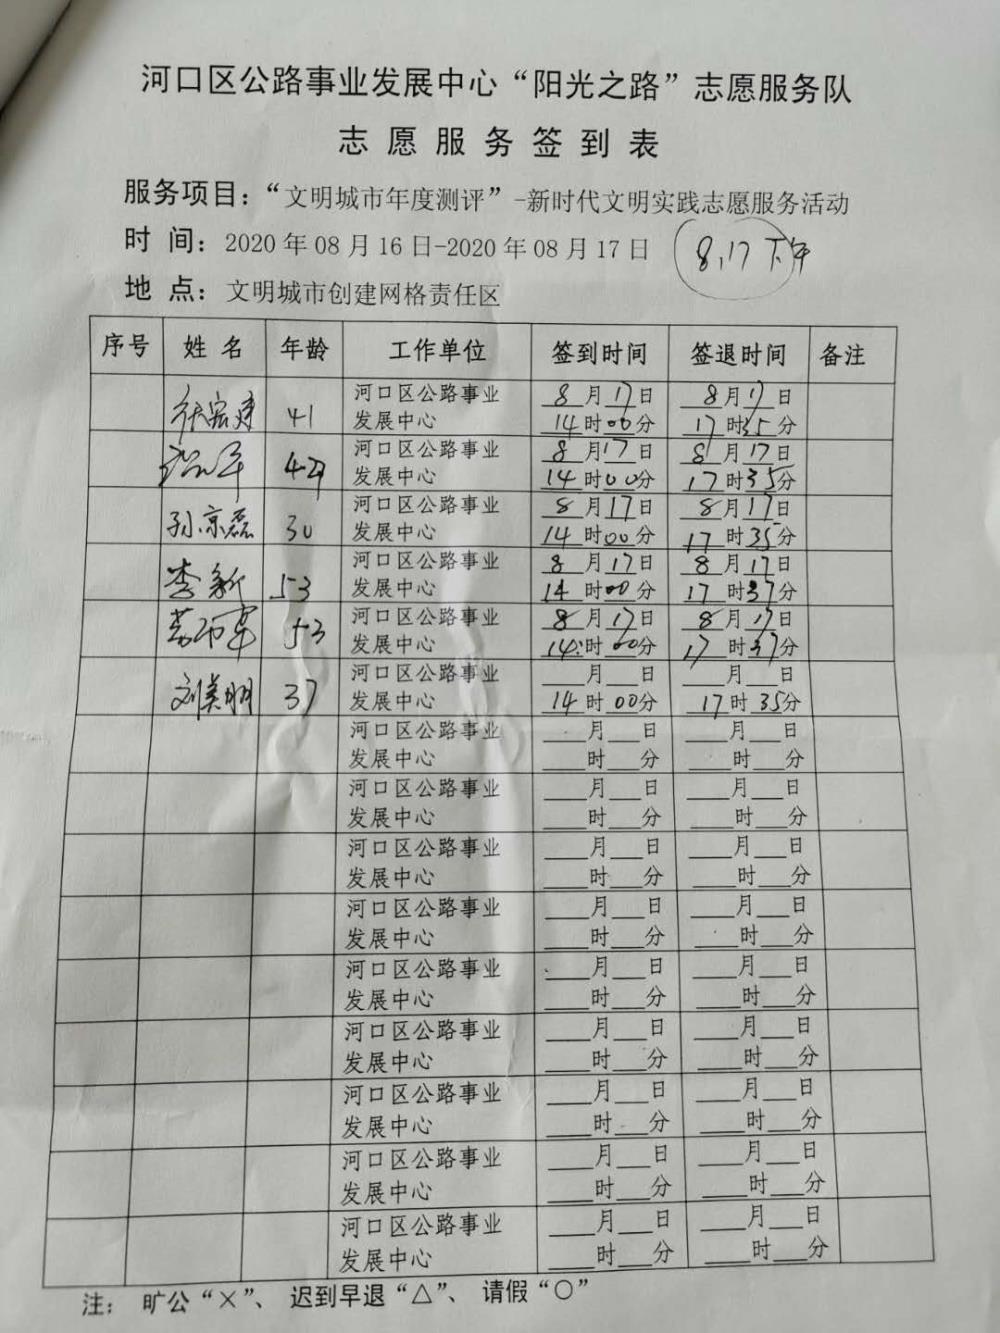 河口区公路事业发展中心“阳光之路”志愿服务队
志愿服务签到表
服务项目：“文明城市年度测评”-新时代文明实践志愿服务活动
时 间：2020年08月16日-2020年08月17日 8.17下午
地 点：文明城市创建网格责任区
序号 姓名 年龄 工作单位 签到时间 签退时间 备注
河口区公路事业 8月17日 8月17日
宏建 41 发展中心 14时00分 17时35分
河口区公路事业 8月17日 8月17日
发展中心 14时00分 17时35分
河口区公路事业 8月17日 8月17日
孙京磊 30 发展中心 14时00分 17时35分
河口区公路事业 8月17日 8月17日
李新 53 发展中心 14时00分 17时37分
河口区公路事业 8月17日 8月17日
53 发展中心 14时00分 17时37分
河口区公路事业 月 日 月 日
刘美明 37 发展中心 14时00分 17时35分
河口区公路事业 月 日 月 日
发展中心 时 分 时 分
河口区公路事业 月 日 月 日
发展中心 时 分 时 分
河口区公路事业 月 日 月 日
发展中心 时 分 时 分
河口区公路事业 月 日 月 日
发展中心 时 分 时 分
河口区公路事业 月 日 月 日
发展中心 时 分 时 分
河口区公路事业 月 日 月 日
发展中心 时 分 时 分
河口区公路事业 月 日 月 日
发展中心 时 分 时 分
河口区公路事业 月 日 月 日
发展中心 时 分 时 分
河口区公路事业 月 日 月 日
发展中心 时 分 时 分
注： 旷公“×”、 迟到早退“△”、 请假“○”